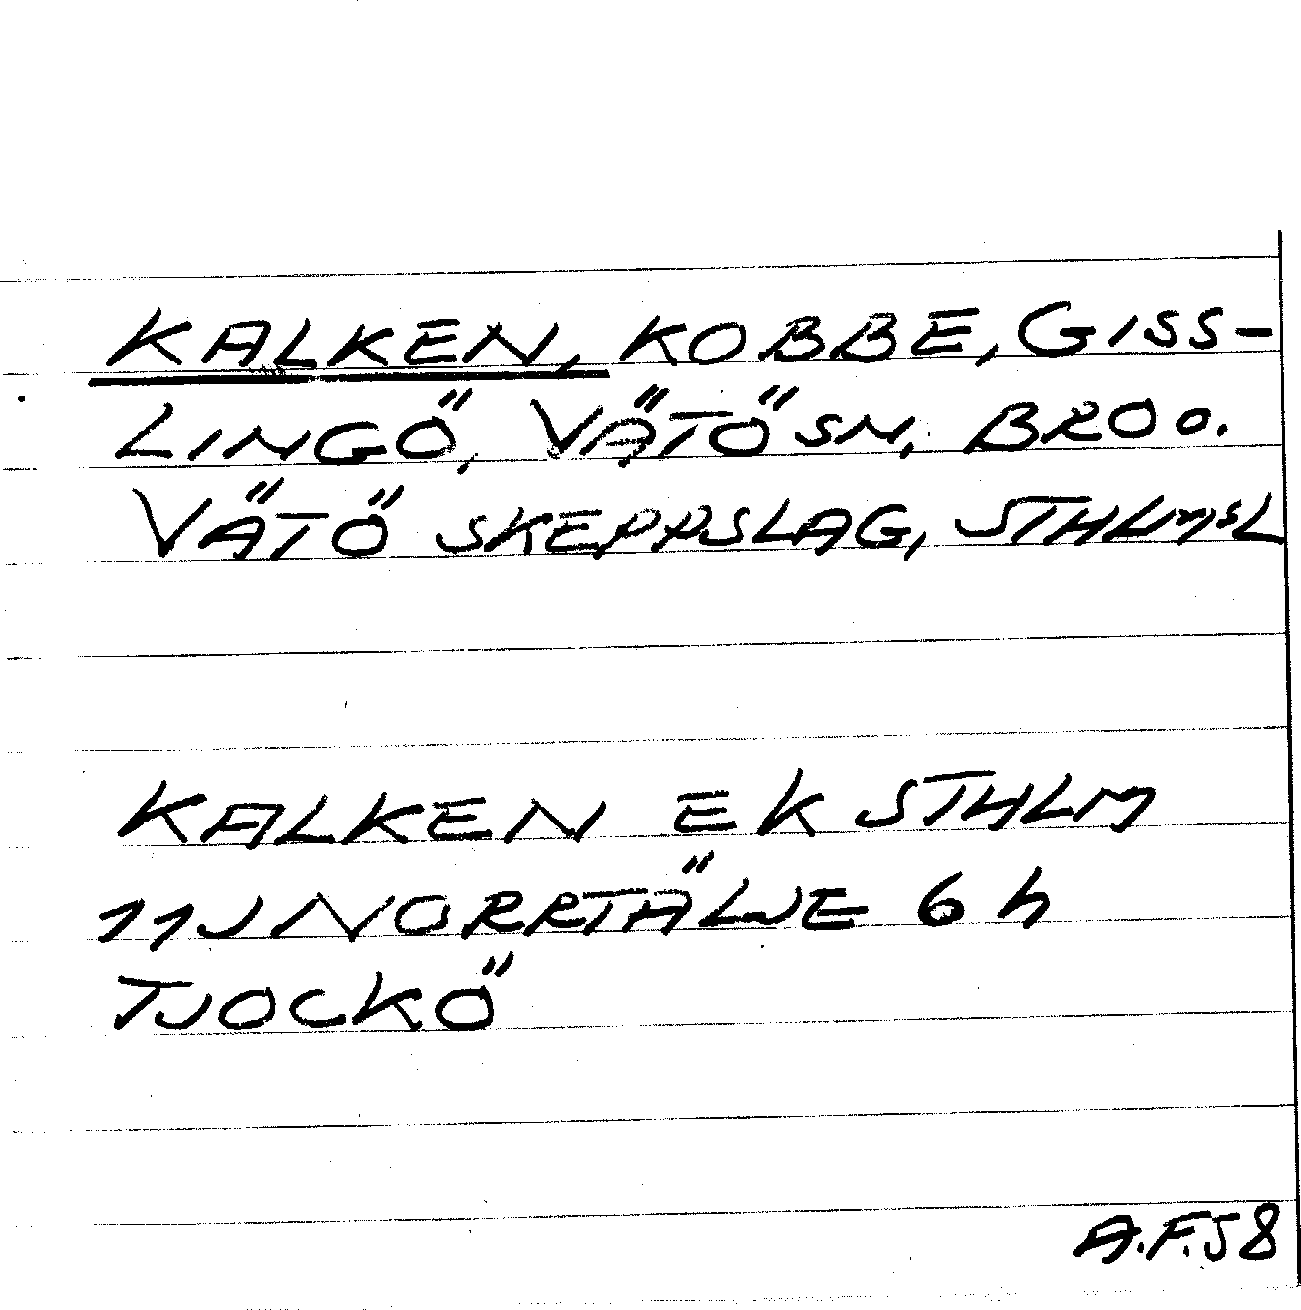 KALKEN, KOBBE, GISS-
LINGÖ, VÄTÖ SN, BRO O.
VÄTÖ SKEPPSLAG, STHLMSL
KALKEN EK STHLM
11J NORRTÄLJE 6 h
TJOCKÖ
A.F.58